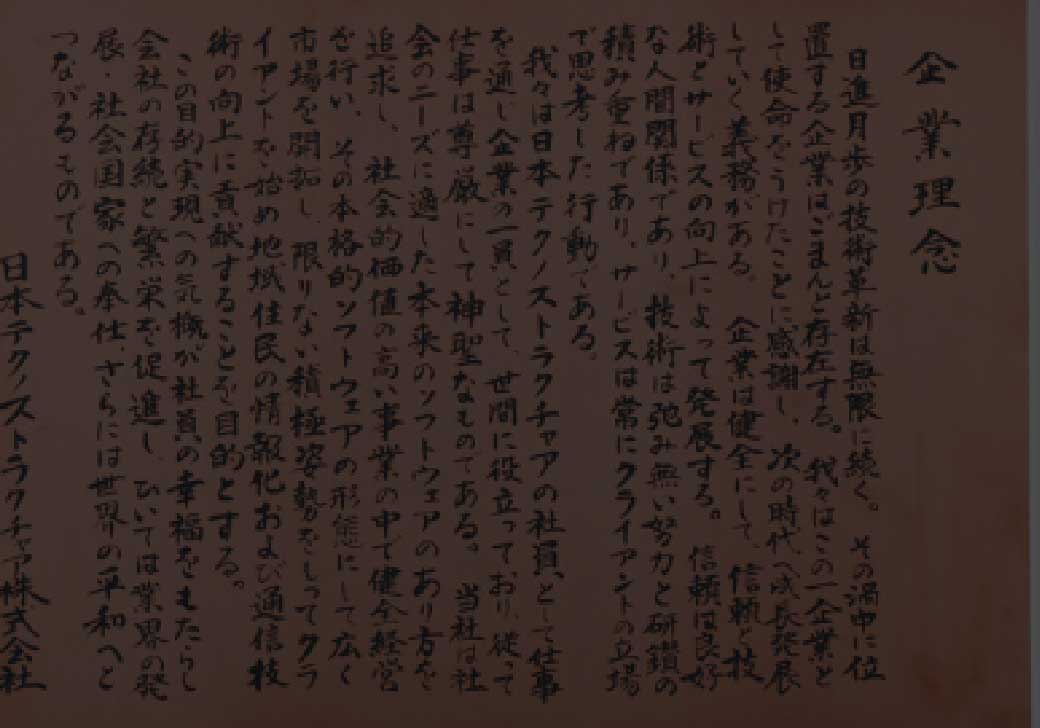 企業理念
日進月歩の技術革新は無限に続く。その渦中に位
置する企業はごまんと存在する。我々はこの一企業と
して使命をうけたことに感謝し、次の時代へ成長発展
していく義務がある。企業は健全にして、信頼と技
術とサービスの向上によって発展する。信頼は良好
な人間関係であり、技術は弛み無い努力と研鑽の
積み重ねであり、サービスは常にクライアントの立場
で思考した行動である。
我々は日本テクノストラクチャアの社員として仕事
を通じ企業の一員として、世間に役立っており、従って
仕事は尊厳にして神聖なものである。当社は社
会のニーズに適した本来のソフトウェアのあり方を
追求し、社会的価値の高い事業の中で健全経営
を行い、その本格的ソフトウェアの形態にして広く
市場を開拓し、限りない積極姿勢をもってクラ
イアントを始め地域住民の情報化および通信技
術の向上に貢献することを目的とする。
この目的実現への気概が社員の幸福をもたらし
会社の存続と繁栄を促進し、ひいては業界の発
展・社会国家への奉仕、さらには世界の平和へと
つながるものである。
日本テクノストラクチャア株式会社